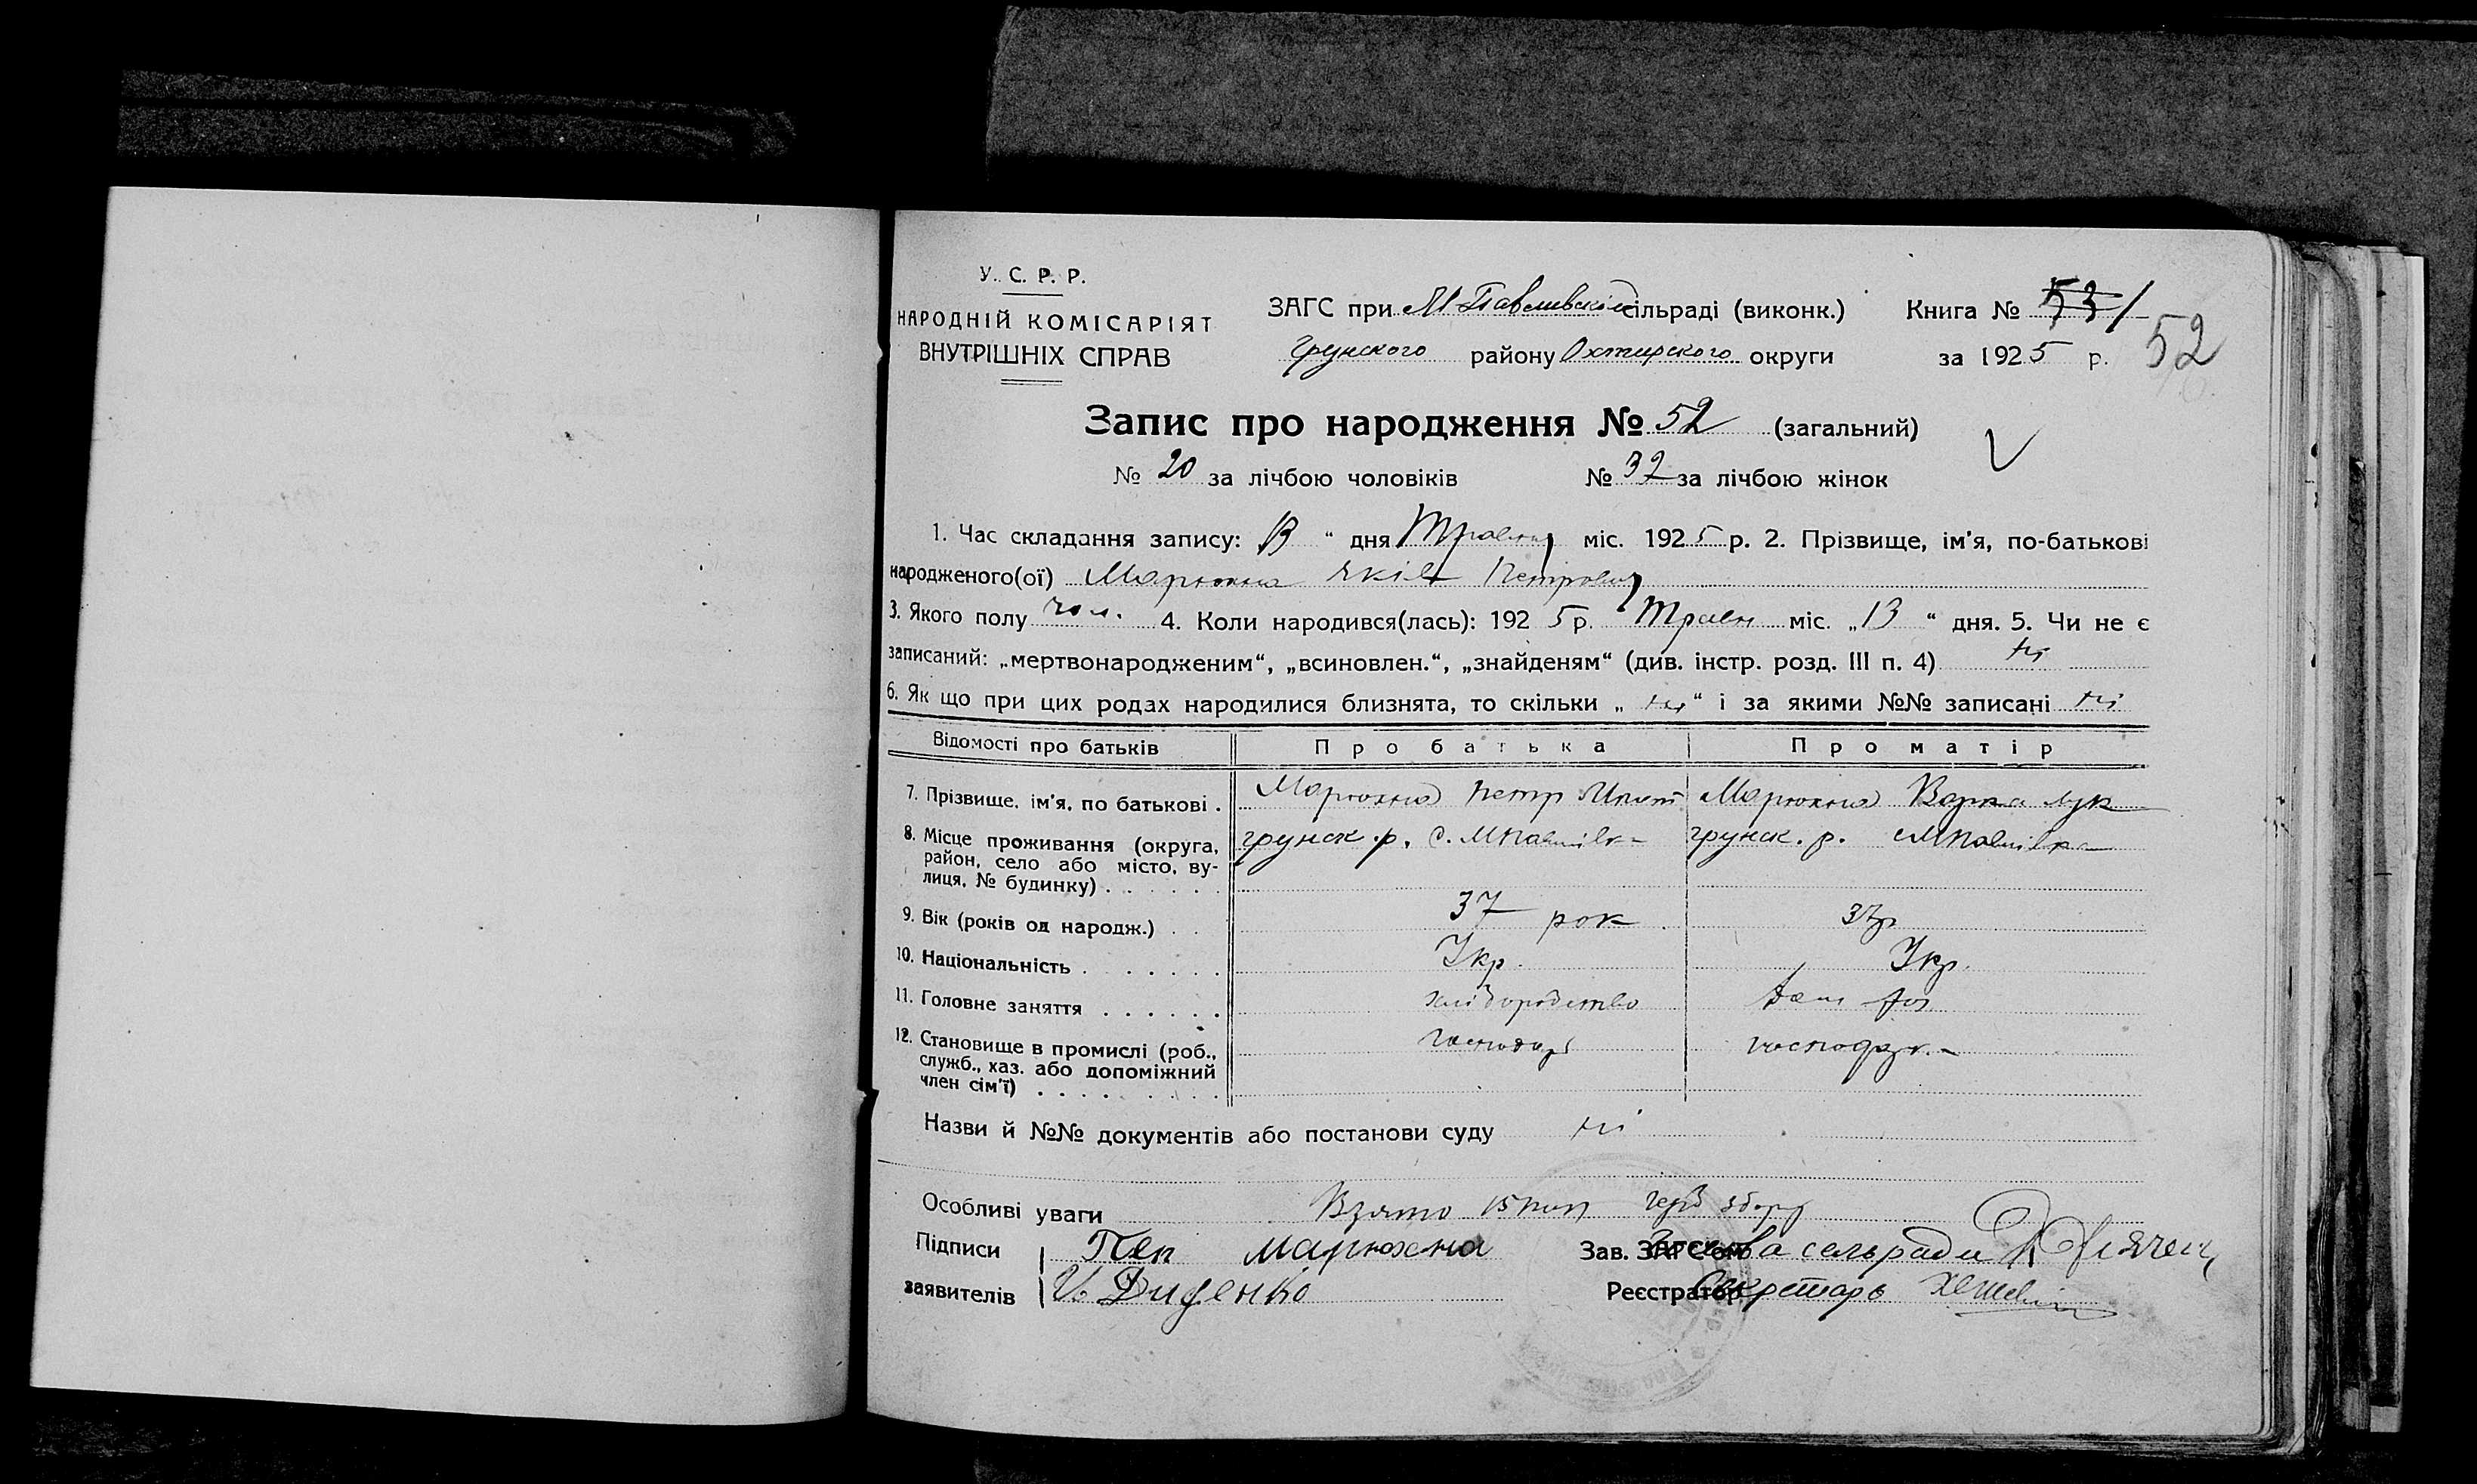 У. С. Р. Р.
НАРОДНІЙ КОМІСАРІЯТ
ВНУТРІШНІХ СПРАВ
ЗАГС при М Павливской сільраді (виконк.) Книга № 53 1
Грунского району Охтирского округи за 1925 р. 52
Запис про народження № 52 (загальний)
№ 20 за лічбою чоловіків № 32 за лічбою жінок
1. Час складання запису: 13 " дня Травня міс. 1925 р. 2. Прізвище, ім'я, по-батькові
народженого(ої) Марюхна Яків Петрович
3. Якого полу чол. 4. Коли народився(лась): 1925 р. Травн міс. „13 " дня. 5. Чи не є
записаний: „мертвонародженим", „всиновлен.", „знайденям" (див. інстр. розд. III п. 4) ні
6. Як що при цих родах народилися близнята, то скільки „ ні " і за якими №№ записані ні
Відомості про батьків Про батька Про матір
7. Прізвище, ім'я, по батькові . Марюхна Петр Марюхна Варка Лук
8. Місце проживання (округа, грунск. р. с. МПавлівка грунск. р. с МПавлівка
район, село або місто, ву-
лиця, № будинку) . . . . . .
9. Вік (років од народж.) . . 37 рок 37р
10. Національність . . . . . . Укр. Укр.
11. Головне заняття . . . . . . хліборобство
12. Становище в промислі (роб., господарь господарк.
служб., хаз. або допоміжний
член сім'ї) . . . . . . . . .
Назви й №№ документів або постанови суду ні
Особливі уваги Взято 15 коп герб збору
Підписи Марюхна Зав. ЗАГС'ом Голова сельради
заявителів И. Диденко Реєстратор Секретарь